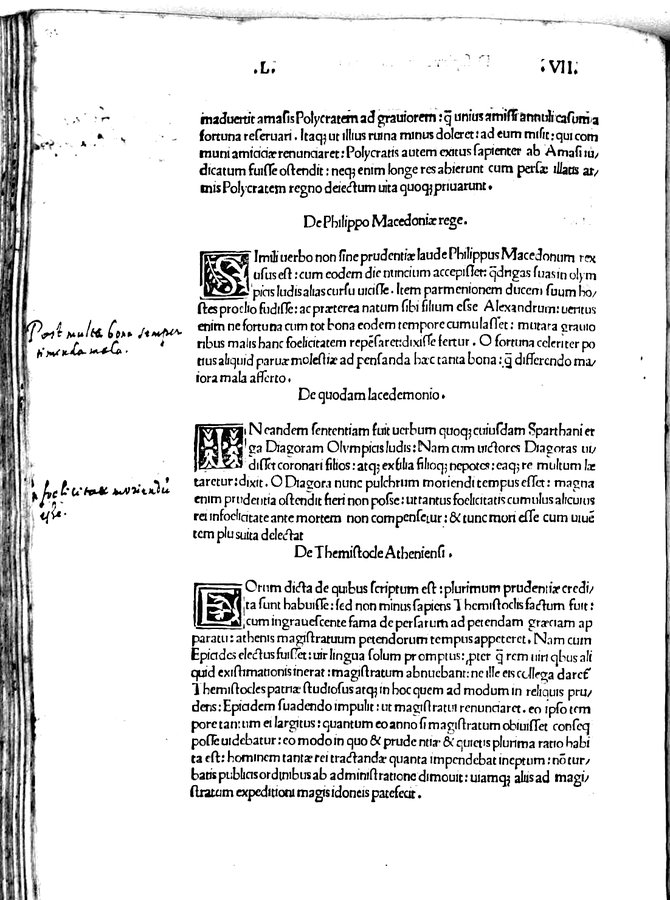 .L. .VII.
maduertit amasis Polycratem ad grauiorem : q̄ unius amissi annuli casum a
fortuna reseruari . Itaq; ut illius ruina minus doleret : ad eum misit : qui com
muni amiciciæ renunciaret : Polycratis autem exitus sapienter ab Amasi iu/
dicatum fuisse ostendit : neq; enim longe res abierunt cum persæ illatis ar/
mis Polycratem regno deiectum uita quoq; priuarunt .
De Philippo Macedoniæ rege .
SImili uerbo non sine prudentiæ laude Philippus Macedonum rex
usus est : cum eodem die nuncium accepisset : q̄drigas suas in olym
picis ludis alias cursu uicisse . Item parmenionem ducem suum ho/
stes proelio fudisse : ac præterea natum sibi filium esse Alexandrum : ueritus
enim ne fortuna cum tot bona eodem tempore cumulasset : mutara grauio
ribus malis hanc foelicitatem repēsaret : dixisse fertur . O fortuna celeriter po
tius aliquid paruæ molestiæ ad pensanda hæc tanta bona : q̄ differendo ma/
iora mala afferto .
De quodam lacedemonio .
IN eandem sententiam fuit uerbum quoq; cuiusdam Sparthani er
ga Diagoram Olympicis ludis : Nam cum uictores Diagoras ui/
disset coronari filios : atq; ex filia filioq; nepotes : eaq; re multum læ
taretur : dixit . O Diagora nunc pulchrum moriendi tempus esset : magna
enim prudentia ostendit fieri non posse : ut tantus foelicitatis cumulus alicuius
rei infoelicitate ante mortem non compensetur : & tunc mori esse cum uiuē
tem plus uita delectat
De Themistocle Atheniensi .
EOrum dicta de quibus scriptum est : plurimum prudentiæ credi/
ta sunt habuisse : sed non minus sapiens Themistoclis factum fuit :
cum ingrauescente fama de persarum ad petendam græciam ap
paratu : athenis magistratuum petendorum tempus appeteret . Nam cum
Epicides electus fuisset : uir lingua solum promptus : ꝓpter q̄ rem uiri qbus ali
quid existimationis inerat : magistratum abnuebant : ne ille eis collega daret
Themistocles patriæ studiosus atq; in hoc quem ad modum in reliquis pru/
dens : Epicidem suadendo impulit : ut magistratui renunciaret . eo ipso tem
pore tantum ei largitus : quantum eo anno si magistratum obiuisset conseq
posse uidebatur : eo modo in quo & prudentiæ & quietis plurima ratio habi
ta est : hominem tantæ rei tractandæ quanta impendebat ineptum : nō tur/
batis publicis ordinibus ab administratione dimouit : uiamq; aliis ad magi/
stratum expeditioni magis idoneis patefecit .
Post multa bona semper
timenda mala .
in foelicitate moriendū
esse .